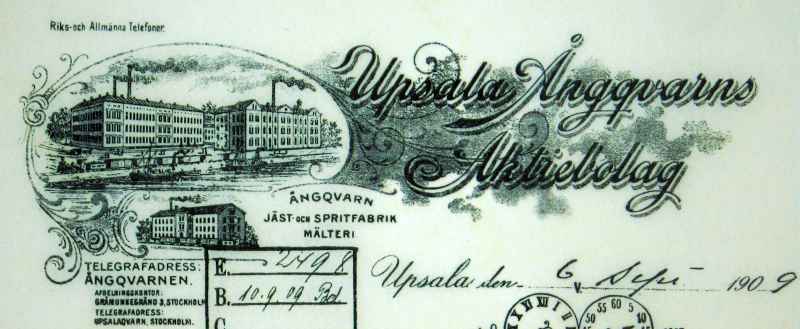 Riks- och Allmänna Telefoner.
Upsala Ångqvarns
Aktiebolag
ÅNGQVARN
JÄST- OCH SPRITFABRIK
MÄLTERI
TELEGRAFADRESS:
ÅNGQVARNEN.
AFDELNINGSKONTOR:
GRÅMUNKEGRÄND 3, STOCKHOLM
TELEGRAFADRESS:
UPSALAQVARN, STOCKHOLM.
E. 2498
B. 10.9.09
C
Upsala den 6 Sept 1909
X XI XII I II
50 55 60 5 10